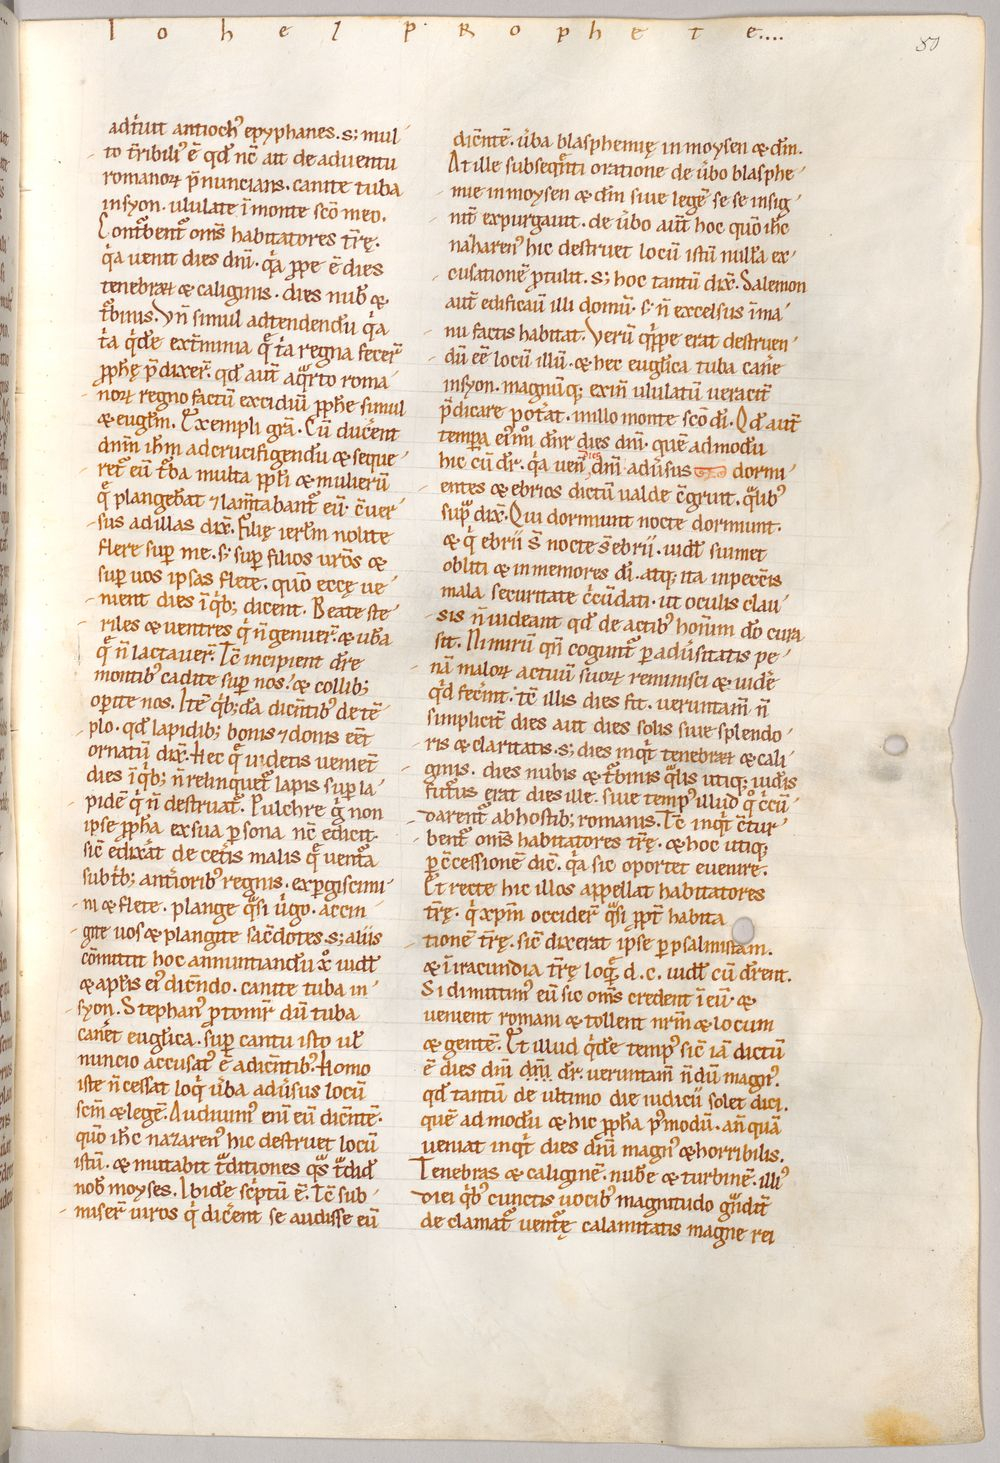 Iohel Prophete....
80
adt̄uit antiochꝰ epyphanes. s; mul
to t̄ribiliꝰ ē qđ nc̄ ait de aduentu
romanoꝝ p̄nuncians. canite tuba
insyon. ululate ī monte sc̄o meo.
Cont̄bent̄ om̄s habitatores tr̄ę.
q̄a uenit dies dn̄i. q̄a ꝓpe ē dies
tenebraꝝ & caliginis. dies nub̄ &
t̄binis. Vn̄ simul adtendendū q̄a
t̄a q̄de ext̄minia q̄ t̄a regna fecer̄
ꝓphę p̄dixer̄. qđ aūt aq̄rto roma
noꝝ regno factū excidiū ꝓphe simul
& eugl̄m. Exempli gr̄a. Cū duc̄ent
dn̄m ih̄m adcrucifigendū & seque
ret̄ eū t̄ba multa pp̄li & mulierū
q̄ plangeb̄at ⁊ lam̄tabant̄ eū. c̄uer
sus ad illas dix̄. Filię ierl̄m nolite
flere suꝑ me. s; suꝑ filios ur̄os &
suꝑ uos ipsas flete. quō eccę ue
nient dies ī q̄b; dicent. Beate ste
riles & uentres q̄ n̄ genuer̄. & ub̄a
q̄ n̄ lactauer̄. Tc̄ incipient dr̄e
montibꝰ cadite suꝑ nos. & collib;
oꝑite nos. Itē q̄b;da dic̄ntibꝰ de tē
plo. qđ lapidib; bonis ⁊ donis eēt
ornatū dix̄. Hec q̄ uidetis uenient
dies ī q̄b; n̄ relinquet̄ lapis suꝑ la
pidē q̄ n̄ destruat̄. Pulchre ḡ non
ipse ꝓpħa ex sua ꝑsona nc̄ edicit.
sic̄ edixāt de cet̄is malis q̄ uent̄a
sub t̄b; ant̄iorib; regnis. exꝑgiscimi
ni & flete. plange q̄si ūgo. accin
gite uos & plangite sac̄dotes. s; aliis
cōmittit hoc annuntiandū xͦ uidel̄
& apl̄is eiꝰ dicn̄do. canite tuba in
syon. Stephanꝰ ꝓtomr̄ dū tuba
can̄et eugl̄ica. suꝑ cantu isto ul̄
nuncio accusat̄ ē adic̄ntibꝰ. Homo
iste n̄ cessat loq̄ ūba adūsus locū
sc̄m & legē. Audiuimꝰ enī eū dic̄ntē.
quō ih̄c nazarenꝰ hic destruet locū
istū. & mutabit t̄ditiones q̄s t̄did̄
nob̄ moyses. Ibidē sc̄ptū ē. Tc̄ sub
miser̄ uiros q̄ dic̄ent se audisse eū
dic̄ntē. ūba blasphemię in moysen & dm̄.
At ille subseq̄nti oratione de ūbo blasphe
mie in moysen & dm̄ siue legē se se insig
nit̄ expurgauit. de ūbo aūt hoc quō ih̄c
naz̄arenꝰ hic destruet locū istū nullā ex
cusationē ꝓtulit. s; hoc tantū dix̄. Salemon
aūt edificauī illi domū. s; n̄ excelsus ī ma
nu factis habitat. Verū q̄ppe erat destruen
dū eē locū illū. & hec eugl̄ica tuba can̄e
insyon. magnūq; exin̄ ululatū ueracit̄
p̄dicare pot̄at. in illo monte sc̄o dī. Qđ aūt
tempꝰa dn̄r dies dn̄i. quē admodū
hic cū dr̄. q̄a uen̄ dies dn̄i adūsus dormi
entes & ebrios dictū ualde c̄gruit. q̄lib;
sup̄ dix̄. Qui dormiunt nocte dormiunt.
& q̄ ebrii s̄ nocte s̄ ebrii. uidel̄ suimet
obliti & inmemores dī. atq; ita in pecc̄is
mala securitate c̄cūdati. ut oculis clau
sis n̄ uideant qđ de actibꝰ hoīnum dō cura
sit. Nimirū qn̄ cogunt̄ ꝑ adūsitatis pe
nā maloꝝ actuū suoꝝ reminisci & uid̄e
q̄d fec̄int. tc̄ illis dies fit. ueruntam̄ n̄
simplicit̄ dies aut dies solis siue splendo
ris & claritatis. s; dies inq̄t tenebraꝝ & cali
ginis. dies nubis & t̄binis q̄lis utiq; iudęis
futūs erat dies ille. siue tempꝰ illud qͦ c̄cū
darent̄ ab hostib; romanis. Tc̄ inq̄t c̄tur
bent̄ om̄s habitatores tr̄ę. & hoc utiq;
ꝑ c̄cessionē dic̄. q̄a sic oportet euenire.
Et recte hic illos appellat habitatores
tr̄ę. q̄ xp̄m occider̄ q̄si ꝓpt̄ habita
tionē tr̄ę. sic̄ dixerat ipse ꝑ psalmistam.
& ī iracundia tr̄ę loq̄. d. c. uidel̄ cū dr̄ent.
Si dimittimꝰ eū sic om̄s credent ī eū. &
uenient romani & tollent nr̄m & locum
& gentē. Et illud q̄dē tempꝰ sic̄ iā dictū
ē dies dn̄i dn̄i dr̄. ueruntam̄ n̄dū magnꝰ.
qđ tantū de ultimo die iudicii solet dici.
quē ad modū & hic ꝓpħa p̄modū. an̄quā
ueniat inq̄t dies dn̄i magnꝰ & horribilis.
Tenebras & caliginē. nub̄e & turbinē. illiꝰ
diei q̄b; cunctis uocibꝰ magnitudo g̊ndit̄
de clamat̄ uent̄ę calamitatis magne rei